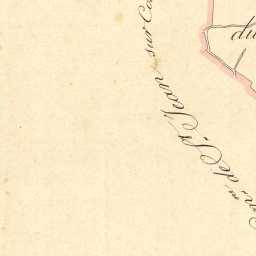 de St. Jean sur Co
du